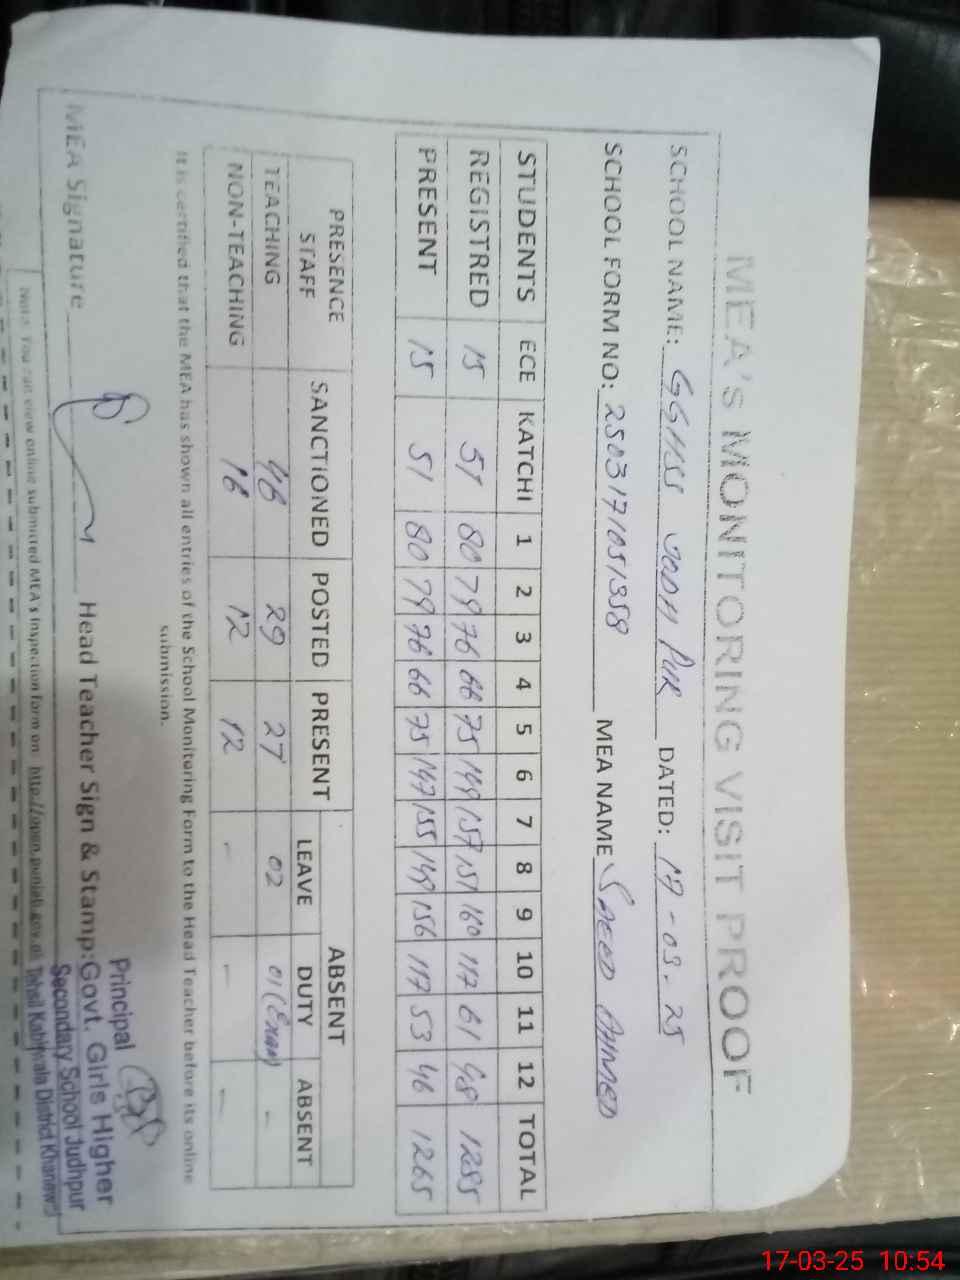 MEA's MONITORING VISIT PROOF
SCHOOL NAME: GGHSS JODH PUR DATED: 17-03-25
SCHOOL FORM NO: 2503171051358 MEA NAME SAEED AHMED
STUDENTS ECE KATCHI 1 2 3 4 5 6 7 8 9 10 11 12 TOTAL
REGISTRED 15 51 80 79 76 66 75 149 157 151 160 117 61 48 1285
PRESENT 15 51 80 79 76 66 75 147 155 149 156 117 53 46 1265
PRESENCE STAFF SANCTIONED POSTED PRESENT ABSENT
LEAVE DUTY ABSENT
TEACHING 46 29 27 02 01 (Exam) -
NON-TEACHING 16 12 12 - - -
It is certified that the MEA has shown all entries of the School Monitoring Form to the Head Teacher before its online
submission.
MEA Signature Head Teacher Sign & Stamp:
Principal
Govt. Girls Higher
Secondary School Judhpur
Tehsil Kabirwala District Khanewal
Note: You can view online submitted MEA's inspection form on http://open.punjab.gov.pk
17-03-25 10:54